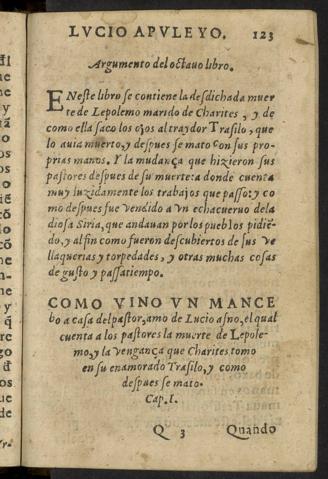 LVCIO APVLEYO. 123
Argumento del octauo libro.
ENeste libro se contiene la desdichada muer
te de Lepolemo marido de Charites, y de
como ella saco los ojos al traydor Trasilo, que
lo auia muerto, y despues se mato con sus pro-
prias manos. Y la mudança que hizieron sus
pastores despues de su muerte: a donde cuenta
muy luzidamente los trabajos que passo: y co
mo despues fue vendido a vn echacueruo dela
diosa Siria, que andauan por los pueblos pidiē-
do, y al fin como fueron descubiertos de sus ve
llaquerias y torpedades, y otras muchas cosas
de gusto y passatiempo.
COMO VINO VN MANCE
bo a casa del pastor, amo de Lucio asno, el qual
cuenta a los pastores la muerte de Lepole-
mo, y la vengança que Charites tomo
en su enamorado Trasilo, y como
despues se mato.
Cap. I.
Q 3 Quando